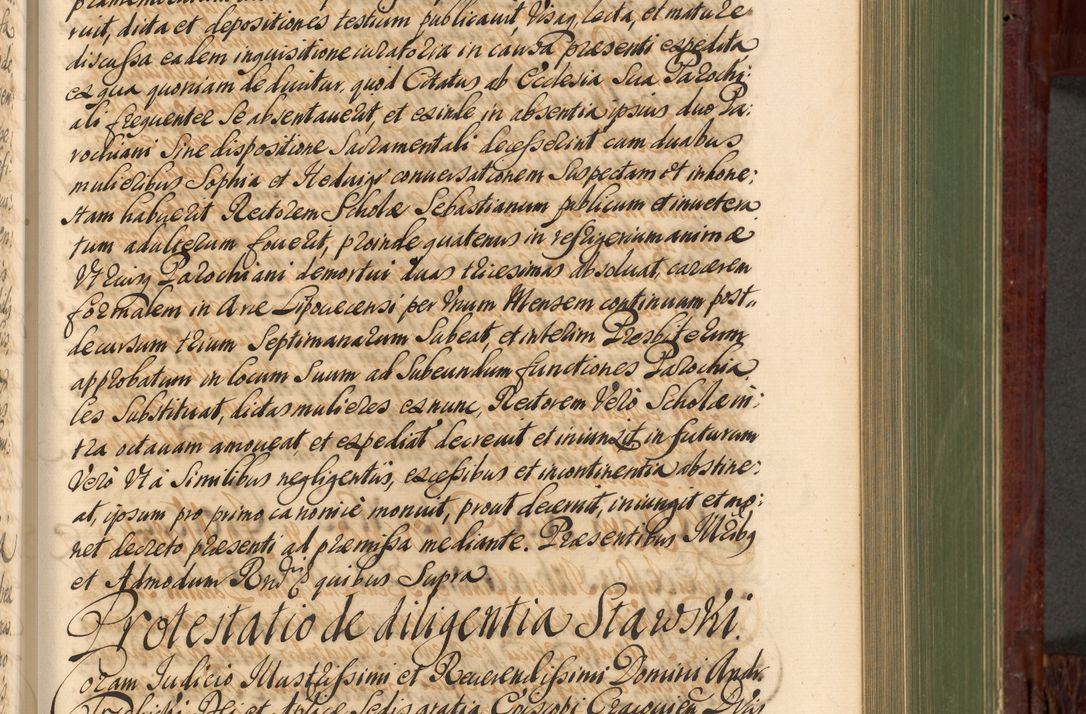 ruit, dicta et depositiones testium publicavit, visaq, lecta, et mature
discussa eadem inquisitione curatoria in causa præsenti expedita
ex qua quoniam deducitur, quod Citatus ab Ecclesia Sua Parochi:
ali frequenter se absentauerit, et exinde in absentia ipsius duo Pa:
rochiani Sine dispositione Sacramentali decesserint cum duabus
mulieribus Sophia et Hedvigi conversationem Suspectam et inhone:
stam habuerit Rectorem Scholæ Sebastianum publicum et invetera
tum adulterum fouerit, proinde quatenus in refrigerium animæ
Utriusq Parochiani demortui duas tricesimas absoluat, carcerem
formalem in Arce Lipovecensi per Unum Mensem continuum post
decursum trium Septimanarum Subeat, et interim Presbiterum
approbatum in locum Suum ad Subeundum functiones Parochia
les Substituat, dictas mulieres ex nunc, Rectorem Verò Scholæ in:
tra octavam amoveat, et expediat decrevit et iniunxit in futurum
Verò Ut à Similibus negligentiis, excessibus et incontinentia abstine:
at, ipsum pro primo canonicè monuit, prout decernit, iniungit et mo:
net decreto præsenti ad præmissa mediante. Præsentibus
et Admodum Rndis quibus Supra
Protestatio de diligentia Stawski.
Coram Judicio Illustrissimi et Reverendissimi Domini Andr
Dei et Aplicæ Sedis gratia Episcopi Cracovien